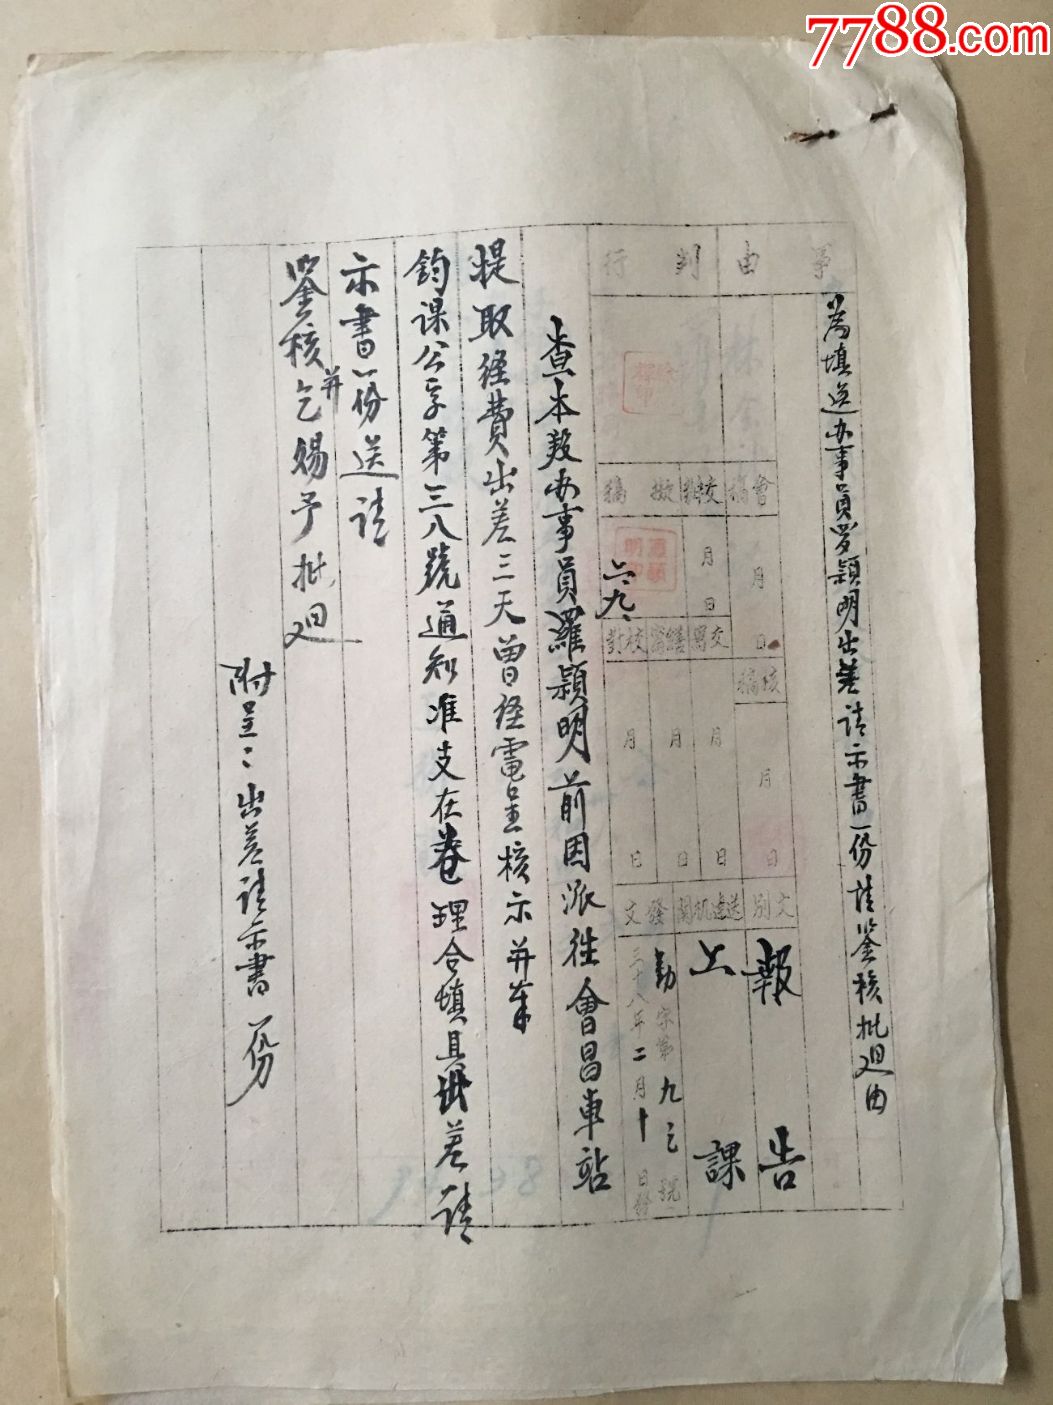 7788.com
事由
為填送办事員罗穎明出差請示書一份請鉴核批迴由
判行
會稿
月
日
核稿
月
日
文別
報告
擬稿
月
日
交寫
月
日
送達机関
上課
繕寫
月
日
校對
月
日
發文
勤字第九三號
三十八年二月十日發
二、九、
查本段办事員羅穎明前因派往會昌車站
提取经費出差三天曾经電呈核示并奉
鈞課公字第三八號通知准支在卷理合填具出差請
示書一份送請
鉴核并乞賜予批迴
附呈：出差請示書一份